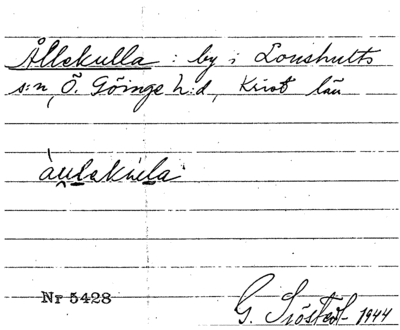 Ållekulla : by i Lonshults
s:n, Ö. Göinge h:d, Krist län
àu̯lakùela
Nr 5428
G. Sjöstedt 1944